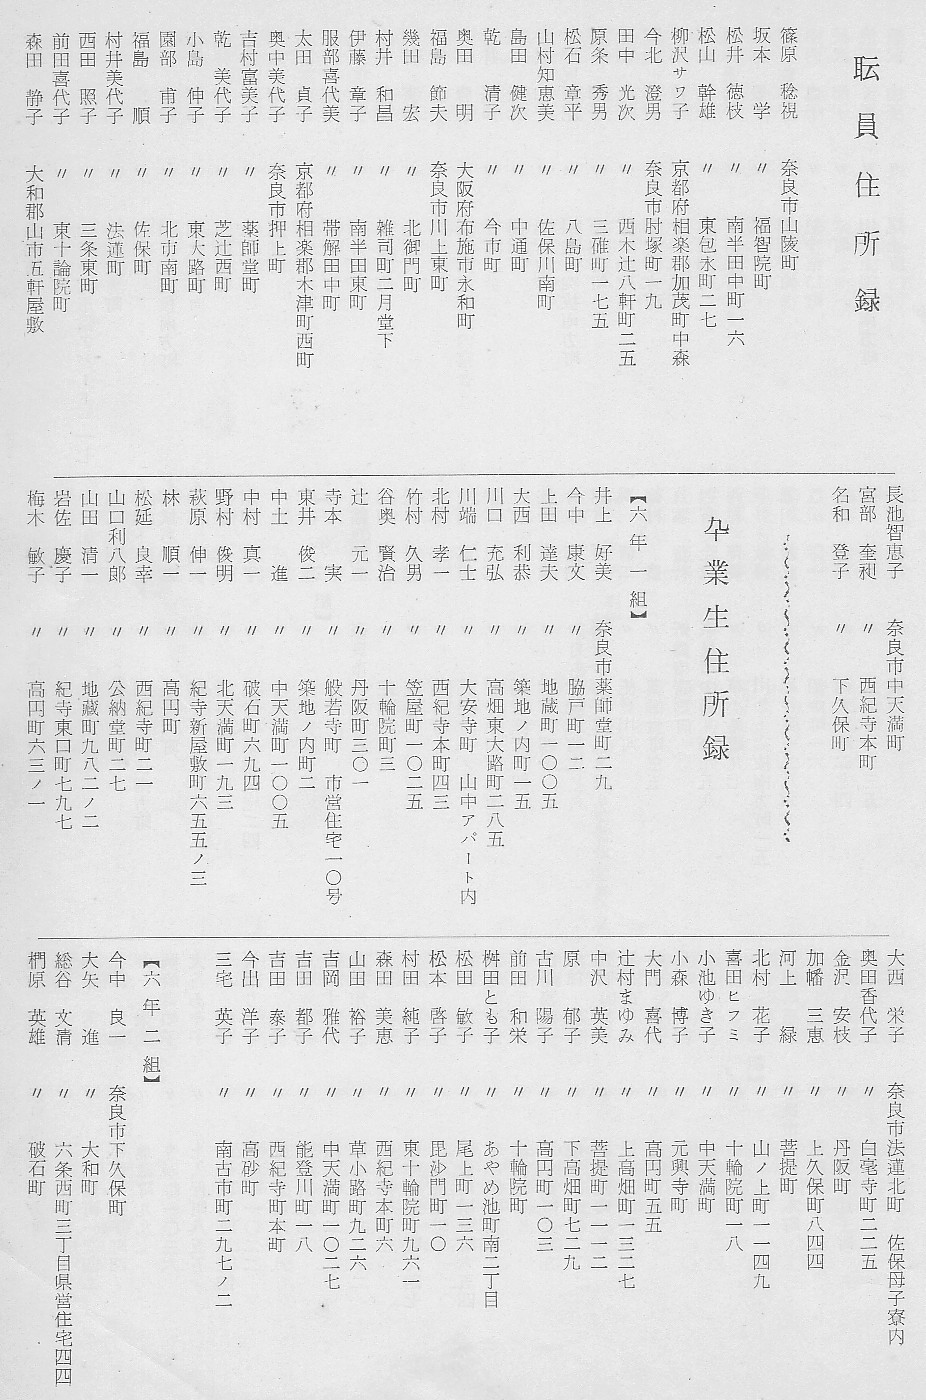 耺員住所録
篠原　稔視　奈良市山陵町
坂本　学　〃　福智院町
松井　徳枝　〃　南半田中町一六
松山　幹雄　〃　東包永町二七
柳沢サワ子　京都府相楽郡加茂町中森
今北　澄男　奈良市肘塚町一九
田中　光次　〃　西木辻八軒町二五
原条　秀男　〃　三碓町一七五
松石　章平　〃　八島町
山村知恵美　〃　佐保川南町
島田　健次　〃　中通町
乾　清子　〃　今市町
奥田　明　大阪府布施市永和町
福島　節夫　奈良市川上東町
幾田　宏　〃　北御門町
村井　和昌　〃　雑司町二月堂下
伊藤　章子　〃　南半田東町
服部喜代美　〃　帯解田中町
太田　貞子　京都府相楽郡木津町西町
奥中美代子　奈良市押上町
吉村富美子　〃　薬師堂町
乾　美代子　〃　芝辻西町
小島　伸子　〃　東大路町
園部　甫子　〃　北市南町
福島　順　〃　佐保町
村井美代子　〃　法蓮町
西田　照子　〃　三条東町
前田喜代子　〃　東十論院町
森田　静子　大和郡山市五軒屋敷
長池智恵子　奈良市中天満町
宮部　奎昶　〃　西紀寺本町
名和　登子　〃　下久保町
卒業生住所録
【六年一組】
井上　好美　奈良市薬師堂町二九
今中　康文　〃　脇戸町一二
上田　達夫　〃　地蔵町一〇〇五
大西　利恭　〃　築地ノ内町一五
川口　充弘　〃　高畑東大路町二八五
川端　仁士　〃　大安寺町　山中アパート内
北村　孝一　〃　西紀寺本町四三
竹村　久男　〃　笠屋町一〇二五
谷奥　賢治　〃　十輪院町三
辻　元一　〃　丹阪町三〇一
寺本　実　〃　般若寺町　市営住宅一〇号
東井　俊二　〃　築地ノ内町二
中土　進　〃　中天満町一〇〇五
中村　真一　〃　破石町六九四
野村　俊明　〃　北天満町一九三
萩原　伸一　〃　紀寺新屋敷町六五五ノ三
林　順一　〃　高円町
松延　良幸　〃　西紀寺町二一
山口利八郎　〃　公納堂町二七
山田　清一　〃　地蔵町九八二ノ二
岩佐　慶子　〃　紀寺東口町七九七
梅木　敏子　〃　高円町六三ノ一
大西　栄子　奈良市法蓮北町　佐保母子寮内
奥田香代子　〃　白毫寺町二二五
金沢　安枝　〃　丹阪町
加幡　三恵　〃　上久保町八四四
河上　緑　〃　菩提町
北村　花子　〃　山ノ上町一一四九
喜田ヒフミ　〃　十輪院町一八
小池ゆき子　〃　中天満町
小森　博子　〃　元興寺町
大門　喜代　〃　高円町五五
辻村まゆみ　〃　上高畑町一三二七
中沢　英美　〃　菩提町一一一二
原　郁子　〃　下高畑町七二九
古川　陽子　〃　高円町一〇三
前田　和栄　〃　十輪院町
桝田とも子　〃　あやめ池町南二丁目
松田　敏子　〃　尾上町一三六
松本　啓子　〃　毘沙門町一〇
村田　純子　〃　東十輪院町九六一
森田　美恵　〃　西紀寺本町六
山田　裕子　〃　草小路町九二六
吉岡　雅代　〃　中天満町一〇二七
吉田　都子　〃　能登川町一八
吉田　泰子　〃　西紀寺町本町
今出　洋子　〃　高砂町
三宅　英子　〃　南古市町二九七ノ二
【六年二組】
今中　良一　奈良市下久保町
大矢　進　〃　大和町
総谷　文清　〃　六条西町三丁目県営住宅四四
椚原　英雄　〃　破石町